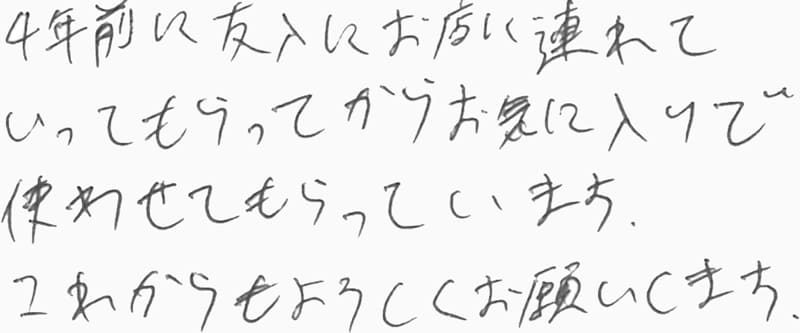 4年前に友人にお店に連れて
いってもらってからお気に入りで
使わせてもらっています.
これからもよろしくお願いします.